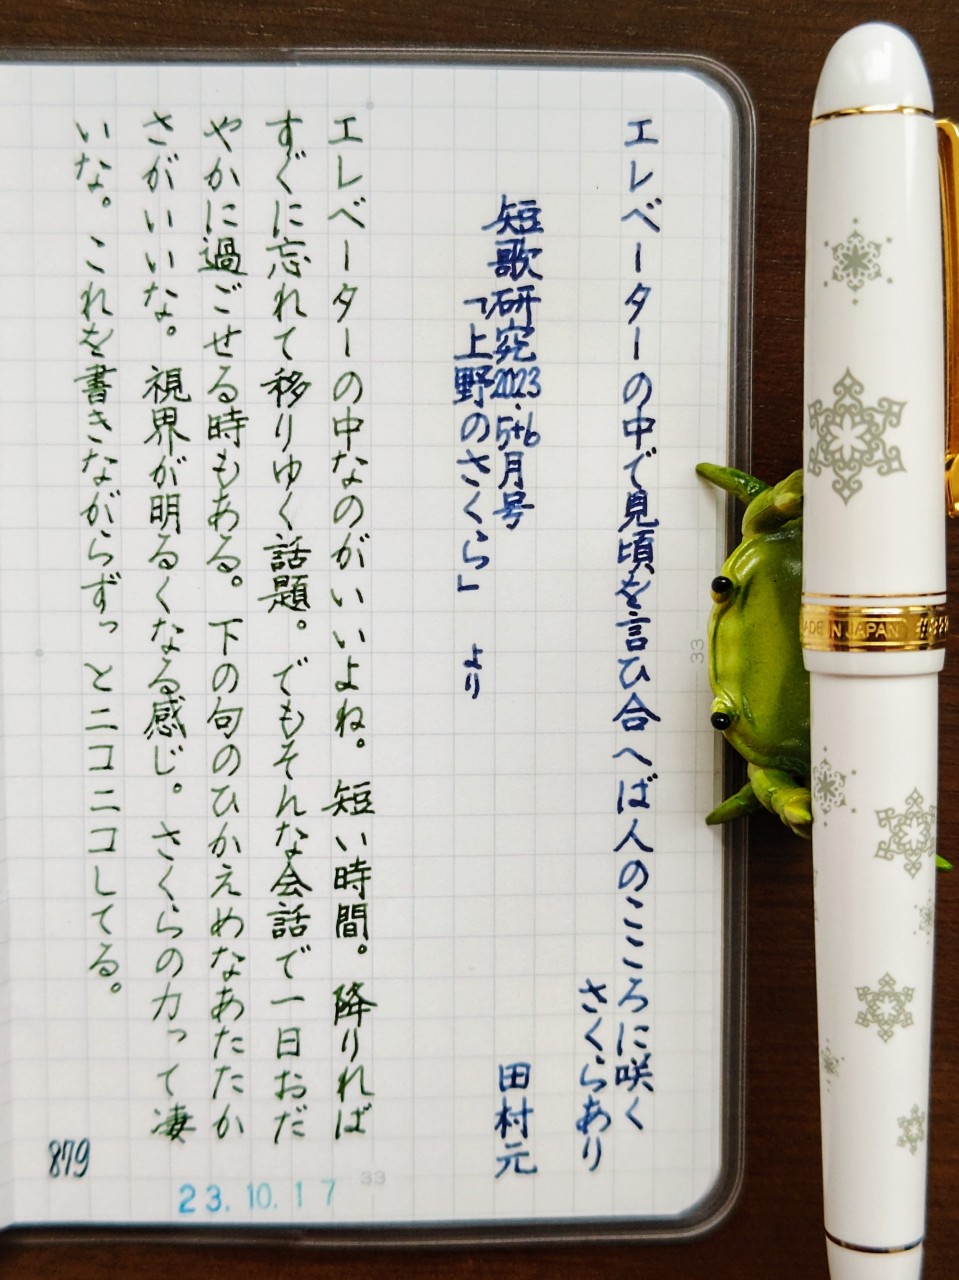 エレベーターの中で見頃を言ひ合へば人のこころに咲く
さくらあり
田村元
短歌研究2023.5+6月号
「上野のさくら」より
エレベーターの中なのがいいよね。短い時間。降りれば
すぐに忘れて移りゆく話題。でもそんな会話で一日おだ
やかに過ごせる時もある。下の句のひかえめなあたたか
さがいいな。視界が明るくなる感じ。さくらの力って凄
いな。これを書きながらずっとニコニコしてる。
879
23.10.17
33
33
MADE IN JAPAN